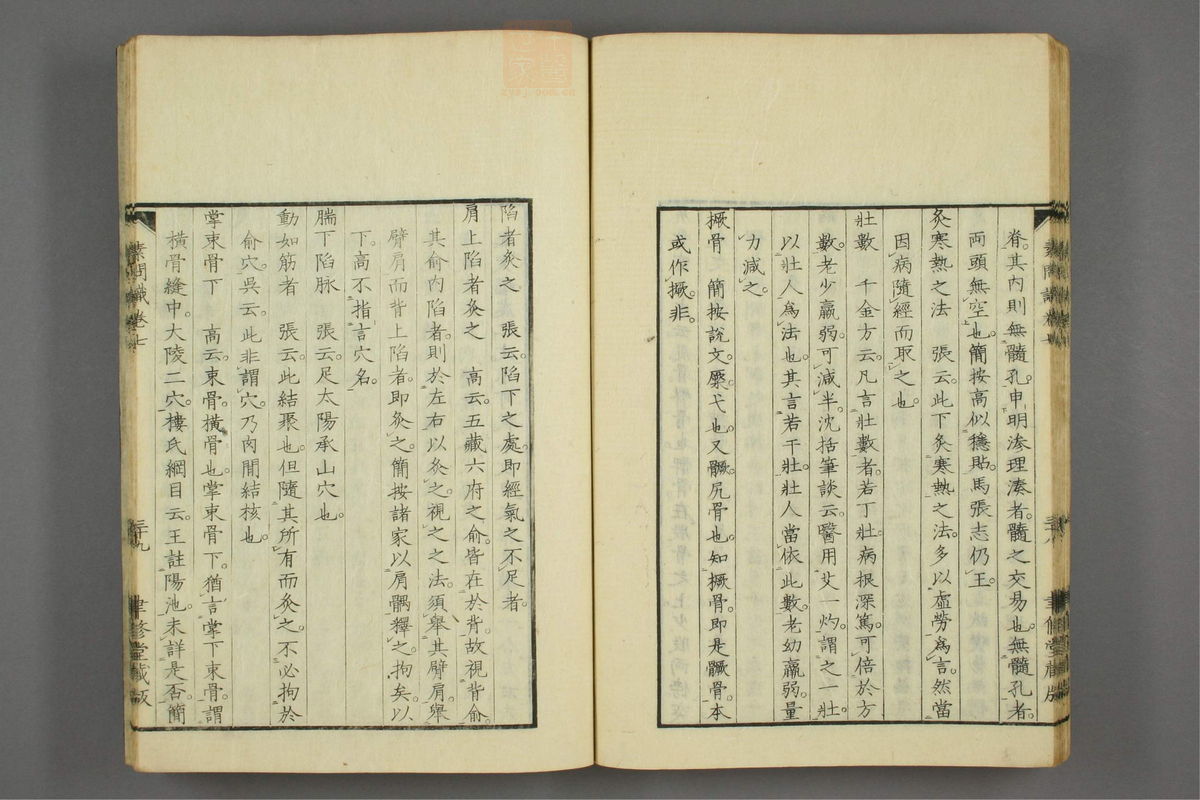 脊其内則無髓孔申明滲理湊者髓之交易也無髓孔者
両頭無空也簡按高似穩貼馬張志仍王
灸寒熱之法　張云此下灸寒熱之法多以虛勞為言然當
因病隨經而取之也
壯數　千金方云凡言壯數者若丁壯病根深篤可倍於方
數老少羸弱可減半沈括筆談云醫用艾一灼謂之一壯
以壯人為法也其言若干壯壯人當依此數老幼羸弱量
力減之
橛骨　簡按說文橜弋也又𩪗尻骨也知橛骨即是𩪗骨本
或作撅非
陷者灸之　張云陷下之處即經氣之不足者
肩上陷者灸之　高云五藏六府之俞皆在於背故視背俞
其俞内陷者則於左右以灸之視之之法須舉其臂肩舉
臂肩而背上陷者即灸之簡按諸家以肩髃釋之拘矣以
下高不指言穴名
腨下陷脉　張云足太陽承山穴也
動如筋者　張云此結聚也但隨其所有而灸之不必拘於
俞穴吳云此非謂穴乃肉間結核也
掌束骨下　高云束骨橫骨也掌束骨下猶言掌下束骨謂
橫骨縫中大陵二穴樓氏綱目云王註陽池未詳是否簡
素問識卷七
三十九
聿修堂藏版